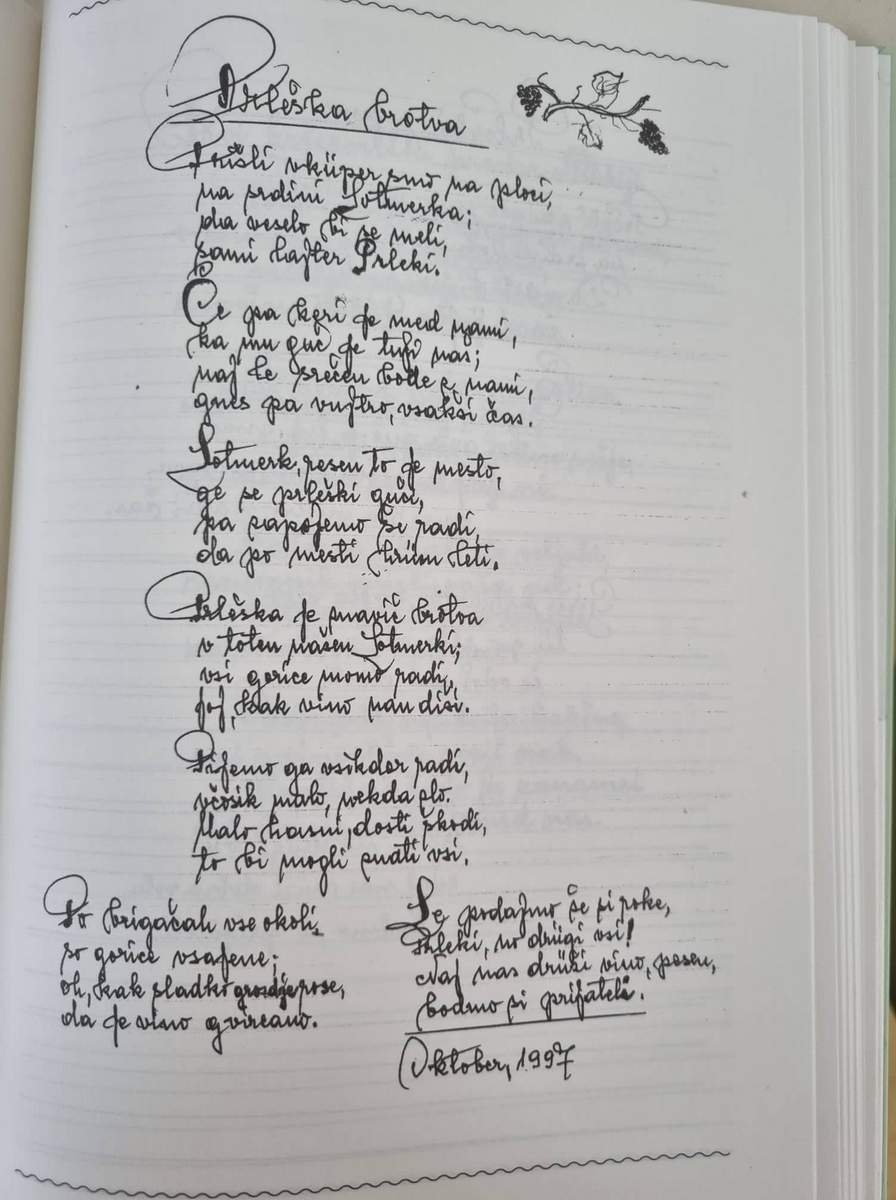 Prlėška brotva
Prišli vküper smo na ploci,
na srdini Lotmerka;
da veselo bi se meli,
sami hajter Prleki.
Če pa keri je med nami,
ka mu guč je tuji nas;
naj le srečen bode z nami,
gnes pa vujtro, vsakši čas.
Lotmerk, resen to je mesto,
ge se prleški guči,
pa zapojemo še radi,
da po mesti hrüm leti.
Prlėška je znavič brotva
v toten našen Lotmerki;
vsi gorice momo radi,
joj, kak vino nan diši.
Pijemo ga vsikdar radi,
včosik malo, nekda zlo.
Malo hasni, dosti škodi,
to bi mogli znati vsi.
Po brigačah vse okoli,
so gorice vsajene;
oh, kak sladko grozdje rose,
da je vino gvircano.
Le podajmo še si roke,
Prleki, no drügi vsi!
Naj nas drüži vino, pesen,
bodmo si prijateli.
Oktober, 1997